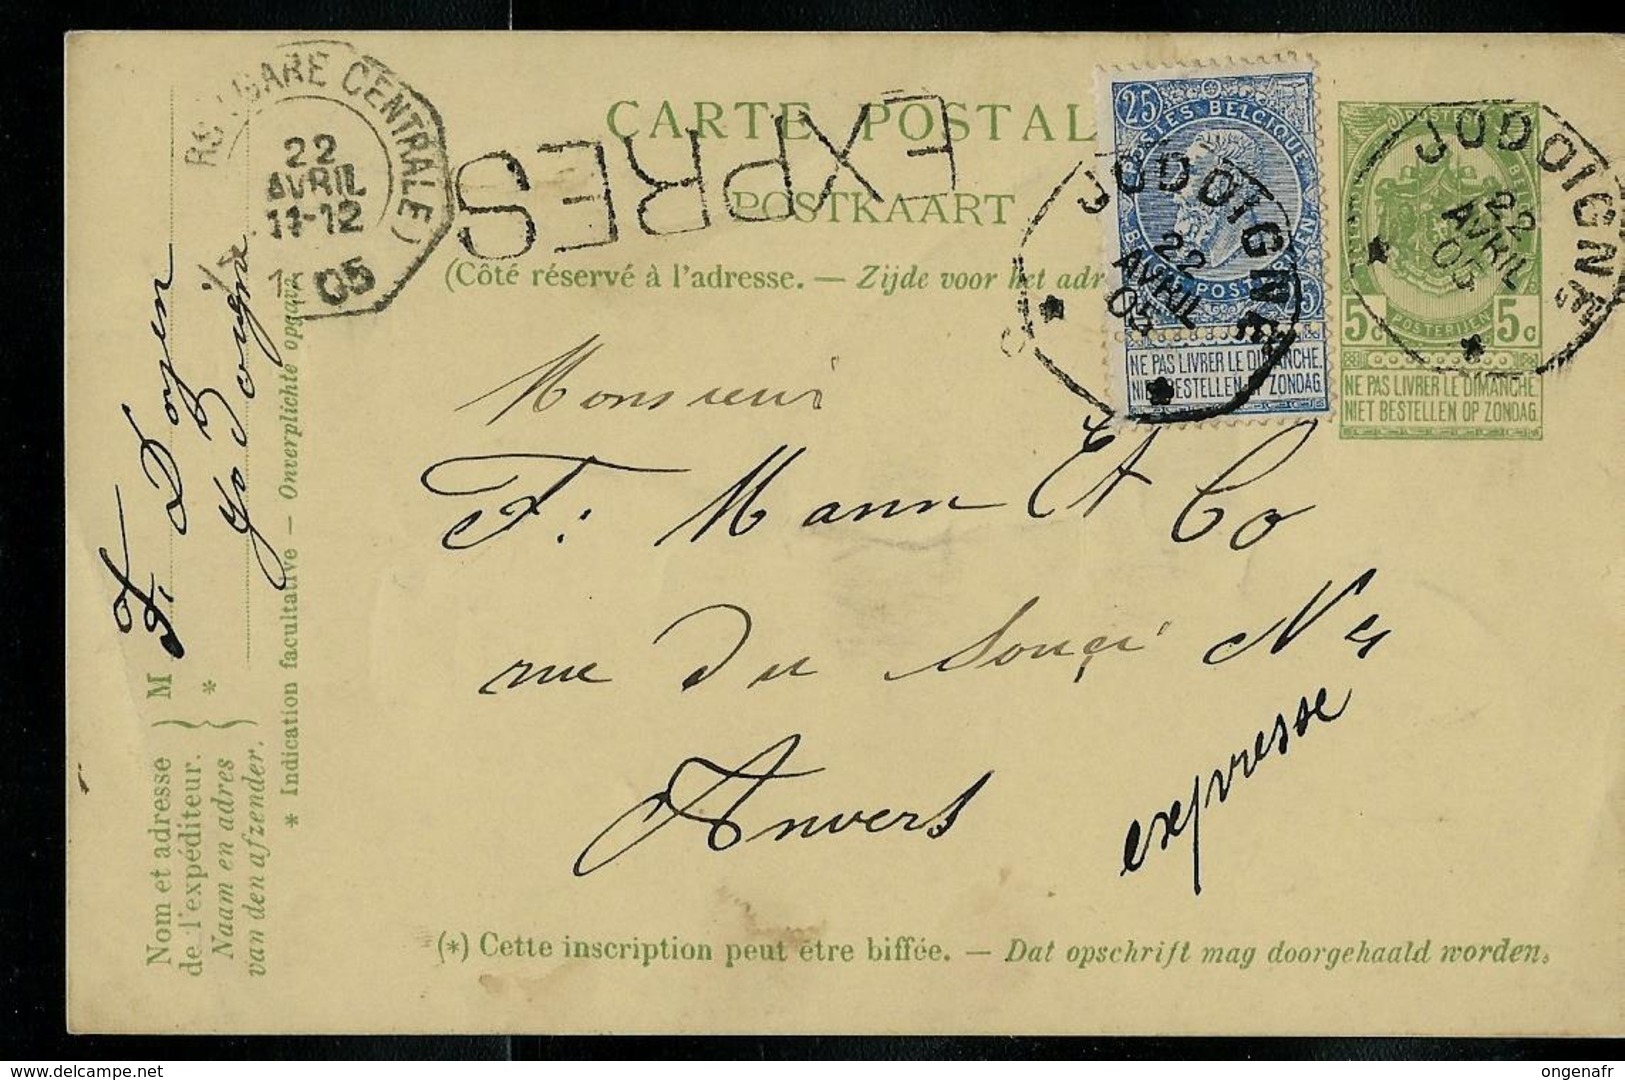 CARTE POSTAL
POSTKAART
(Côté réservé à l'adresse. — Zijde voor het adr
EXPRES
RS (GARE CENTRALE)
22
AVRIL
11-12
05
25
POSTES BELGIQUE
NE PAS LIVRER LE DIMANCHE
NIET BESTELLEN OP ZONDAG
JODOIGNE
22
AVRIL
05
POSTERIJEN
5c 5c
NE PAS LIVRER LE DIMANCHE
NIET BESTELLEN OP ZONDAG
JODOIGNE
22
AVRIL
05
Monsieur
F. Mann Et Co
rue du Souci N
Anvers
expresse
Nom et adresse
de l'expéditeur.
Naam en adres
van den afzender.
M F. Doyen
Jodoigne
* Indication facultative — Onverplichte opgave
(*) Cette inscription peut être biffée. — Dat opschrift mag doorgehaald worden.
delcampe.net
ongenafr